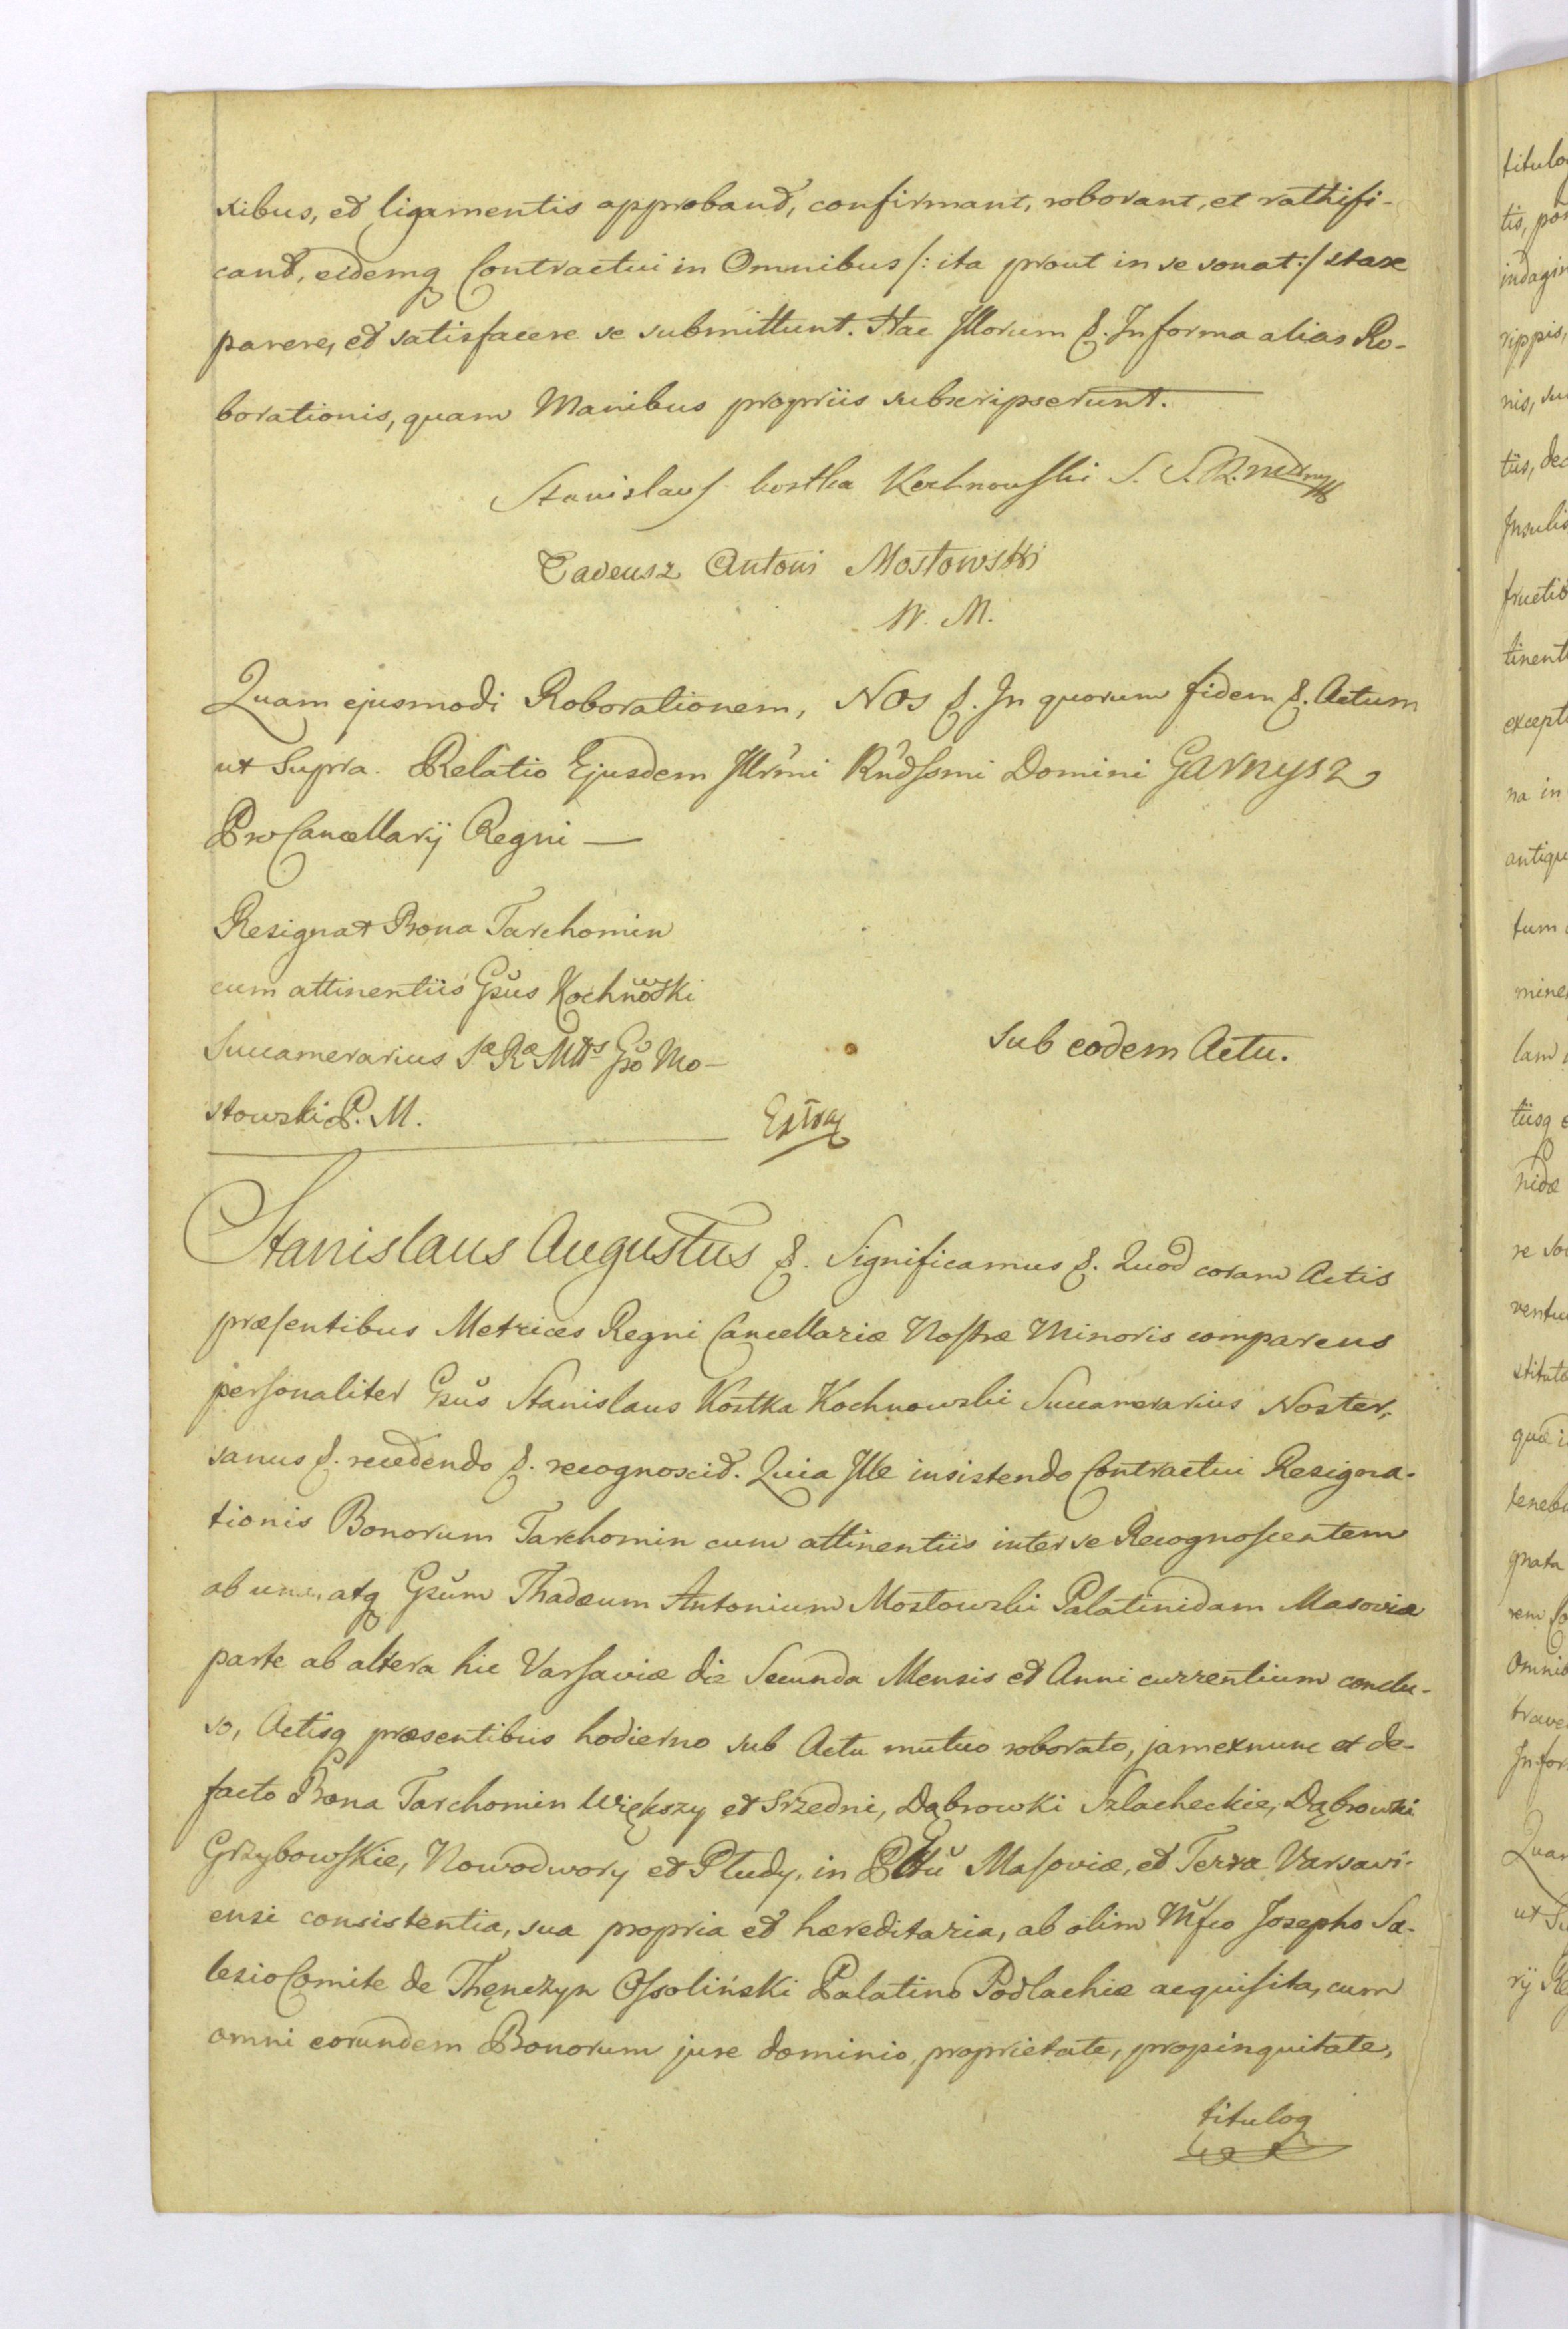 xibus, et ligamentis approbant, confirmant, roborant, et rathifi-
cant, eidemq Contractui in Omnibus /: ita prout in se sonat :/ stare
parere, et satisfacere se submittunt. Hac Illorum &. In forma alias Ro-
borationis, quam Manibus propriis subscripserunt.
Stanislaus kostka Kochnowski S. S. R.
Tadeusz Antoni Mostowski
W. M.
Quam ejusmodi Roborationem, Nos &. In quorum fidem &. Actum
ut Supra. Relatio Ejusdem Illrmi Rndssmi Domini Garnysz
ProCancellarij Regni —
Resignat Bona Tarchomin
cum attinentiis Gsus Kochnowski
Succamerarius Sæ Ræ Mttis Gso Mo-
stowski P. M.
sub eodem Actu.
Extrad
Stanislaus Augustus &. Significamus &. Quod coram Actis
præsentibus Metrices Regni Cancellariæ Nostræ Minoris comparens
personaliter Gsus Stanislaus Kostka Kochnowski Succamerarius Noster,
sanus &. recedendo &. recognoscit. Quia Ille insistendo Contractui Resigna-
tionis Bonorum Tarchomin cum attinentiis inter se Recognoscentem
ab una, atq Gsum Thadæum Antonium Mostowski Palatinidam Masoviæ
parte ab altera hic Varsaviæ die Secunda Mensis et Anni currentium conclu-
so, Actisq præsentibus hodierno sub Actu mutuo roborato, jam exnunc et de-
facto Bona Tarchomin Większy et Srzedni, Dąbrowki Szlacheckie, Dąbrowki
Grzybowskie, Nowodwory et Pludy, in Pttu Masoviæ, et Terra Varsavi-
ensi consistentia, sua propria et hæreditaria, ab olim Mfco Josepho Sa-
lesio Comite de Thęnczyn Ossoliński Palatino Podlachiæ acquisita, cum
omni eorundem Bonorum jure dominio, proprietate, propinquitate,
tituloq